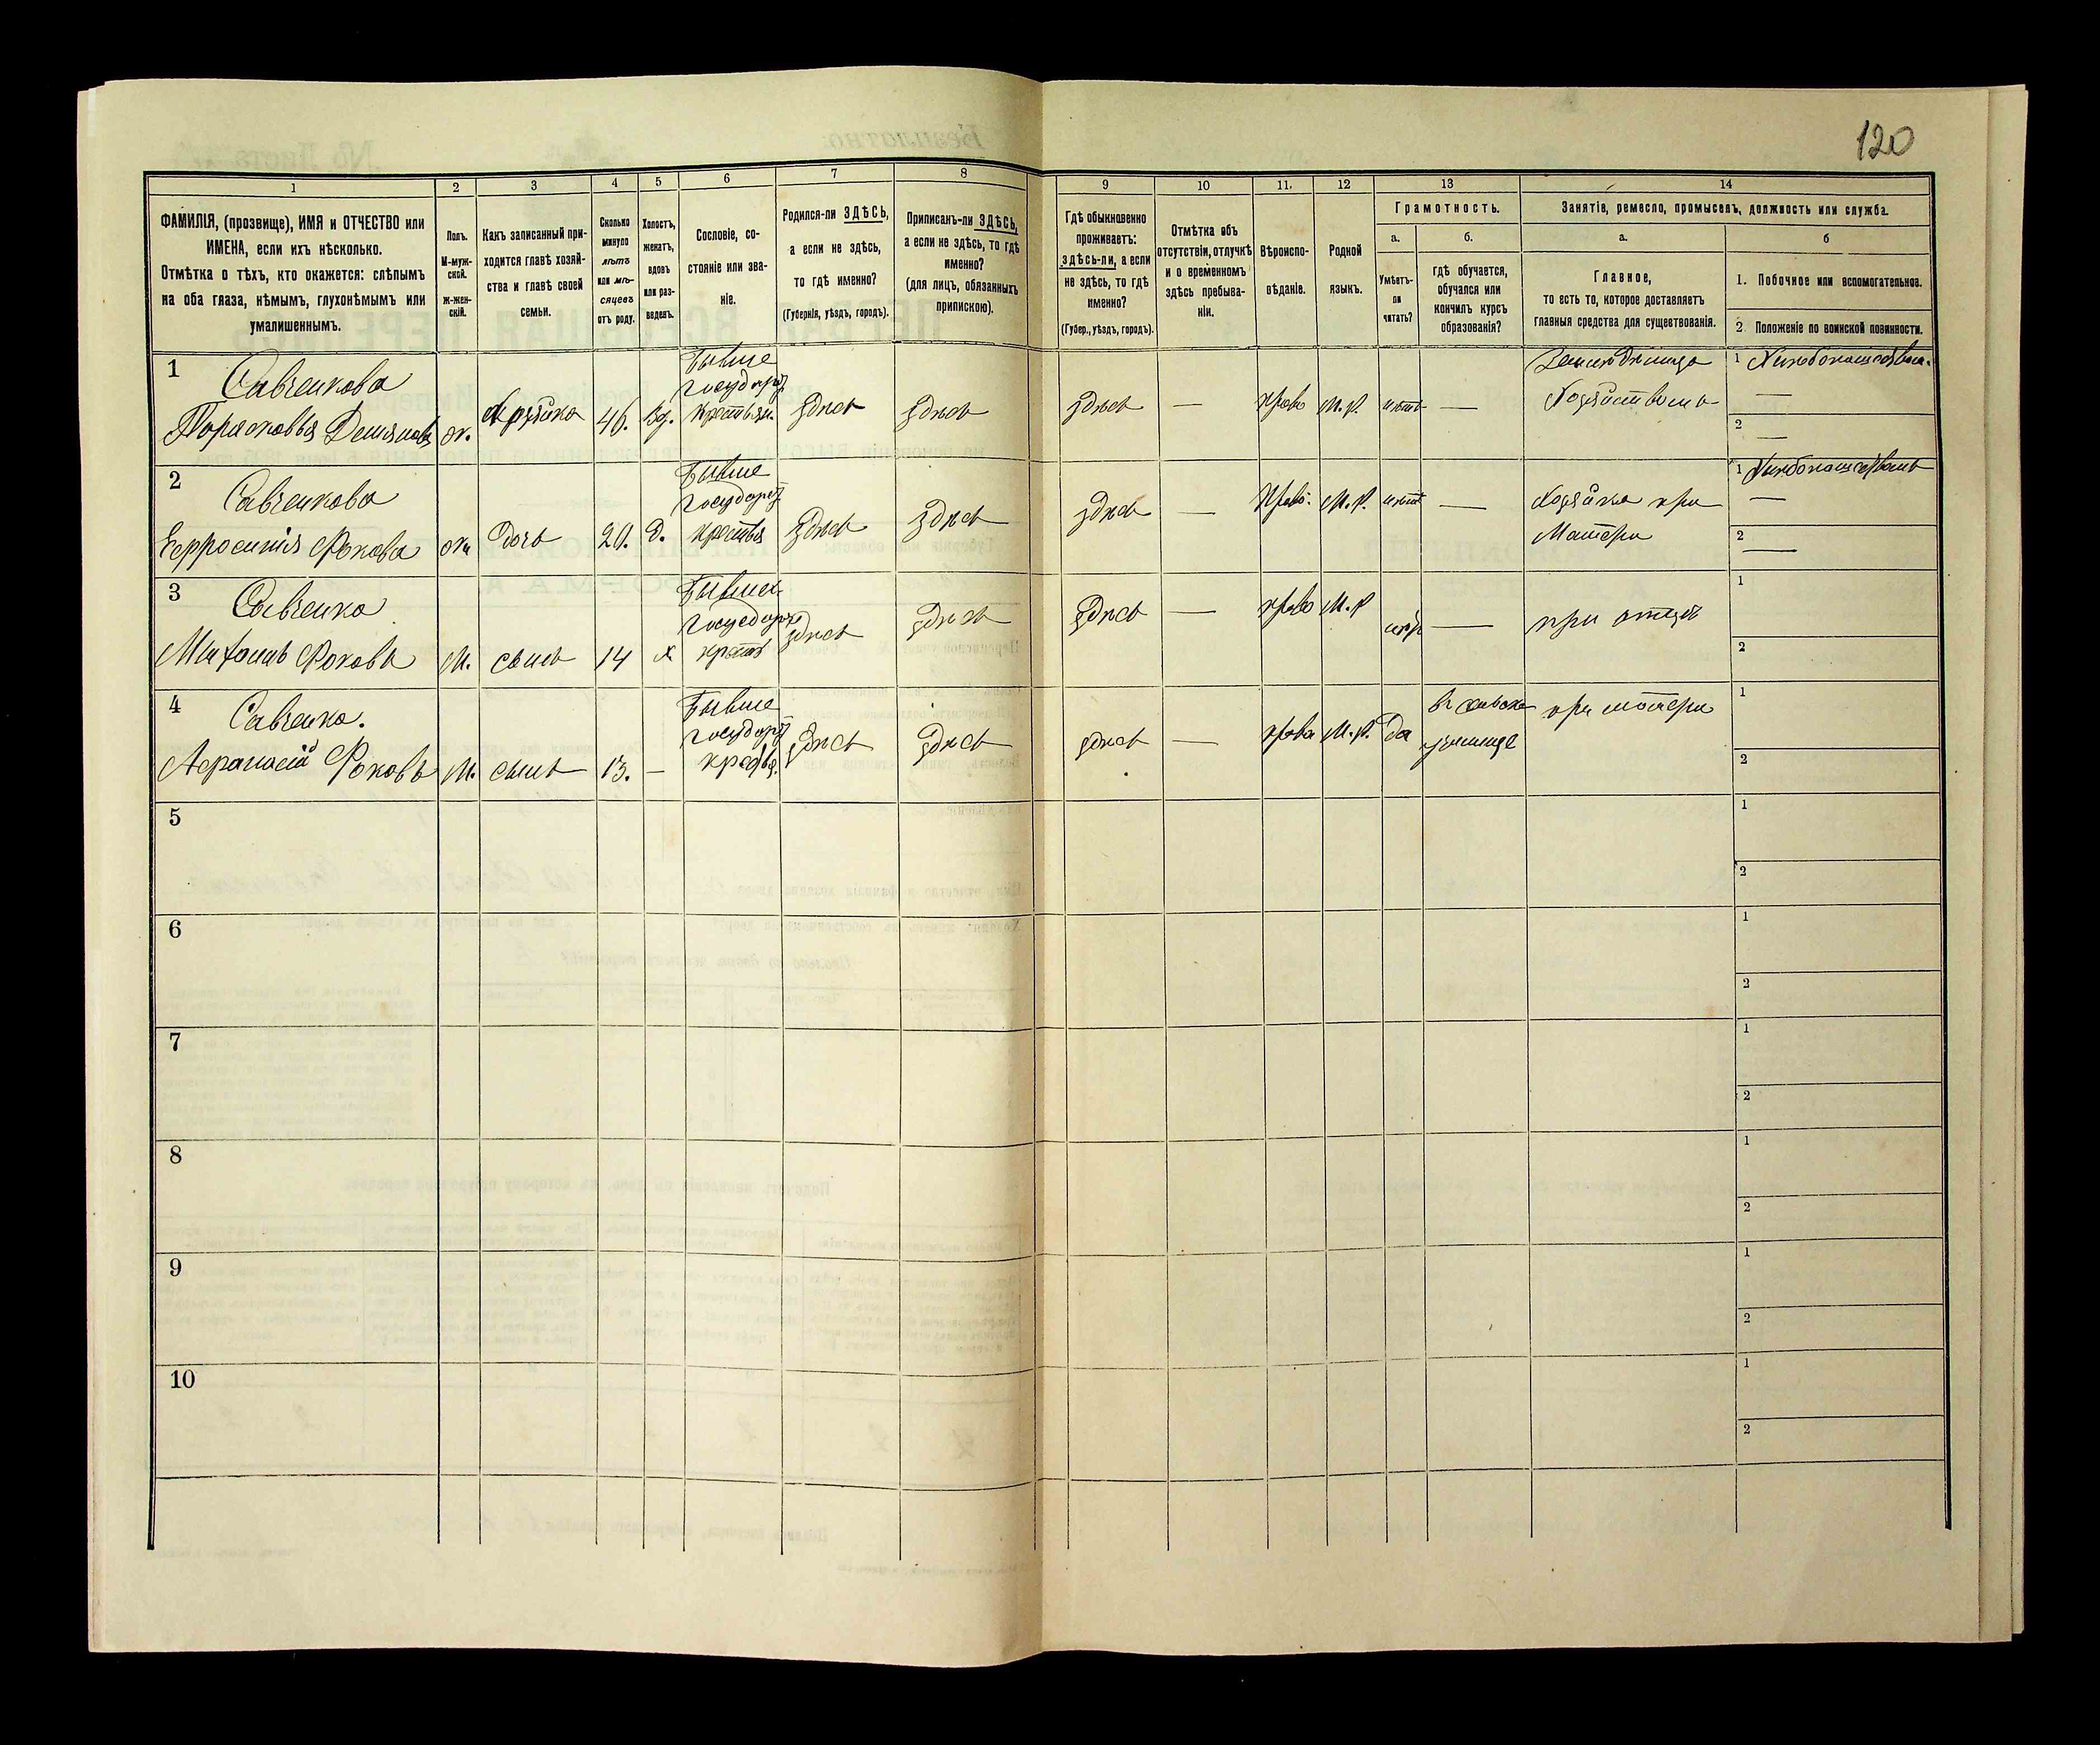 120
1
2
3
4
5
6
7
8
9
10
11.
12
13
14
ФАМИЛІЯ, (прозвище), ИМЯ и ОТЧЕСТВО или
ИМЕНА, если ихъ нѣсколько.
Отмѣтка о тѣхъ, кто окажется: слѣпымъ
на оба глаза, нѣмымъ, глухонѣмымъ или
умалишеннымъ.
Полъ.
М-муж-
ской.
Ж-жен-
скій.
Какъ записанный при-
ходится главѣ хозяй-
ства и главѣ своей
семьи.
Сколько
минуло
лѣтъ
или мѣ-
сяцевъ
отъ роду.
Холостъ,
женатъ,
вдовъ
или раз-
веденъ.
Сословіе, со-
стояніе или зва-
ніе.
Родился-ли ЗДѢСЬ,
а если не здѣсь,
то гдѣ именно?
(Губернія, уѣздъ, городъ).
Приписанъ-ли ЗДѢСЬ,
а если не здѣсь, то гдѣ
именно?
(для лицъ, обязанныхъ
припискою).
Гдѣ обыкновенно
проживаетъ:
здѣсь-ли, а если
не здѣсь, то гдѣ
именно?
(Губер., уѣздъ, городъ).
Отмѣтка объ
отсутствіи, отлучкѣ
и о временномъ
здѣсь пребыва-
ніи.
Вѣроиспо-
вѣданіе.
Родной
языкъ.
Грамотность.
а.
Умѣетъ-
ли
читать?
б.
гдѣ обучается,
обучался или
кончилъ курсъ
образованія?
Занятіе, ремесло, промыселъ, должность или служба.
а.
Главное,
то есть то, которое доставляетъ
главныя средства для существованія.
б
1. Побочное или вспомогательное.
2. Положеніе по воинской повинности.
1
Савченкова
Парасковья Демянова
ж.
Хозяйка
46.
Вд.
Бывше
государ
крестьян.
здѣсь
здѣсь
здѣсь
—
право
М. р.
нѣтъ
—
Земледѣлица
Хозяйствомъ
1
—
2
—
2
Савченкова
Ефросинія Фокова
ж
дочь
20.
д.
Бывше
государ
крестья
здѣсь
здѣсь
здѣсь
—
Право.
М. р.
нѣтъ
—
Хозяйка при
Матери
1
—
2
—
3
Савченко
Митофанъ Фоковъ
М.
сынъ
14
х
Бывше
государ
крест
здѣсь
здѣсь
здѣсь
—
право
М. р
—
при отцѣ
1
2
4
Савченко.
Афанасій Фоковъ
М.
сынъ
13.
—
Бывше
государ
крестья.
здѣсь
здѣсь
здѣсь
—
право
М. р.
Да
училище
при матери
1
2
5
1
2
6
1
2
7
1
2
8
1
2
9
1
2
10
1
2